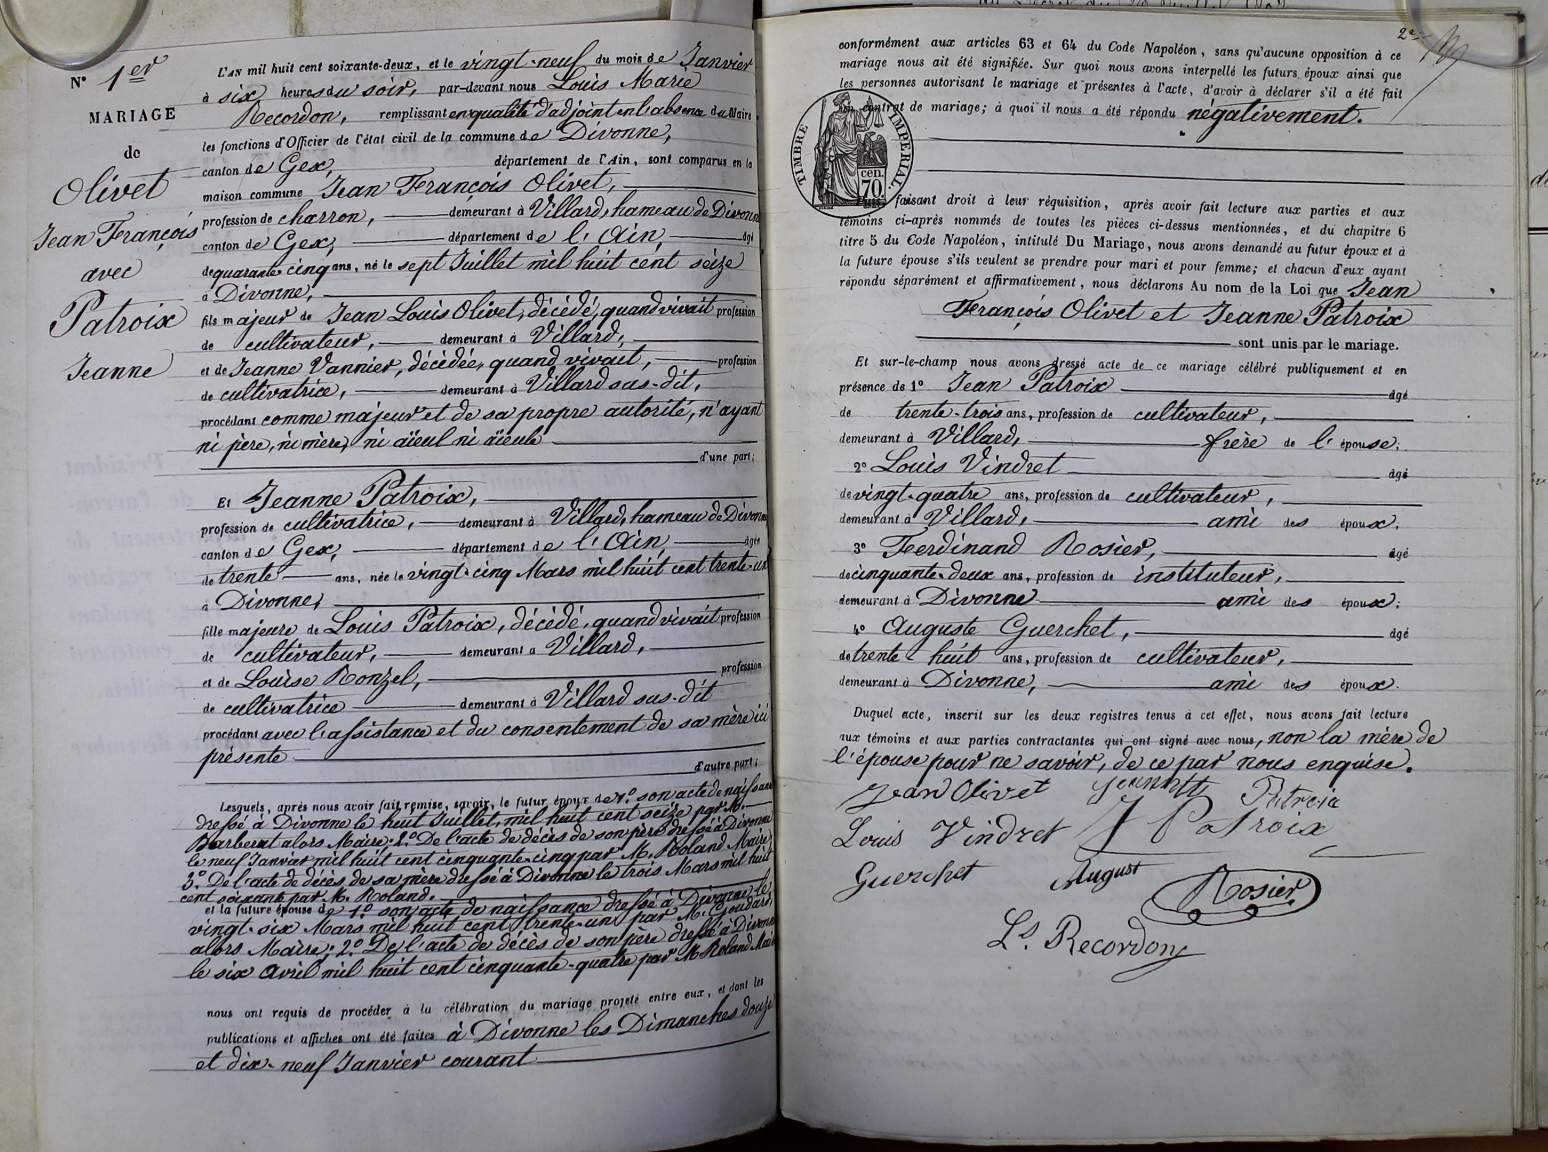 N° 1er
MARIAGE
de
Olivet
Jean François
avec
Patroix
Jeanne
L'AN mil huit cent soixante-deux, et le vingt-neuf du mois de Janvier
à six heures du soir, par-devant nous Louis Marie
Recordon, remplissant en qualité d'adjoint en l'absence du Maire
les fonctions d'Officier de l'état civil de la commune de Divonne,
canton de Gex, département de l'Ain, sont comparus en la
maison commune Jean François Olivet,
profession de charron, demeurant à Villard, hameau de Divonne
canton de Gex, département de l'Ain, âgé
de quarante cinq ans, né le sept Juillet mil huit cent seize
à Divonne,
fils majeur de Jean Louis Olivet, décédé, quand vivait profession
de cultivateur, demeurant à Villard,
et de Jeanne Vannier, décédée, quand vivait, profession
de cultivatrice, demeurant à Villard sus-dit,
procédant comme majeur et de sa propre autorité, n'ayant
ni père, ni mère, ni aïeul ni aïeule
d'une part;
Et Jeanne Patroix,
profession de cultivatrice, demeurant à Villard, hameau de Divonne
canton de Gex, département de l'Ain âgée
de trente ans, née le vingt-cinq Mars mil huit cent trente-un
à Divonne,
fille majeure de Louis Patroix, décédé, quand vivait profession
de cultivateur, demeurant à Villard,
et de Louise Ronzel, profession
de cultivatrice demeurant à Villard sus-dit
procédant avec l'assistance et du consentement de sa mère ici
présente
d'autre part;
Lesquels, après nous avoir fait remise, savoir, le futur époux de 1° son acte de naissance
dressé à Divonne le huit Juillet, mil huit cent seize par M.
Barberat alors Maire; 2° De l'acte de décès de son père dressé à Divonne
le neuf Janvier mil huit cent cinquante-cinq par M. Roland Maire;
3° De l'acte de décès de sa mère dressé à Divonne le trois Mars mil huit
cent soixante par M. Roland.
et la future épouse de 1° son acte de naissance dressé à Divonne le
vingt-six Mars mil huit cent trente-un par M. Goudard,
alors Maire; 2° De l'acte de décès de son père dressé à Divonne
le six avril mil huit cent cinquante-quatre par M. Roland Maire
nous ont requis de procéder à la célébration du mariage projeté entre eux, et dont les
publications et affiches ont été faites à Divonne les Dimanches douze
et dix-neuf Janvier courant
conformément aux articles 63 et 64 du Code Napoléon, sans qu'aucune opposition à ce
mariage nous ait été signifiée. Sur quoi nous avons interpellé les futurs époux ainsi que
les personnes autorisant le mariage et présentes à l'acte, d'avoir à déclarer s'il a été fait
un contrat de mariage; à quoi il nous a été répondu négativement.
TIMBRE IMPÉRIAL
70 cen.
faisant droit à leur réquisition, après avoir fait lecture aux parties et aux
témoins ci-après nommés de toutes les pièces ci-dessus mentionnées, et du chapitre 6
titre 5 du Code Napoléon, intitulé Du Mariage, nous avons demandé au futur époux et à
la future épouse s'ils veulent se prendre pour mari et pour femme; et chacun d'eux ayant
répondu séparément et affirmativement, nous déclarons Au nom de la Loi que Jean
François Olivet et Jeanne Patroix
sont unis par le mariage.
Et sur-le-champ nous avons dressé acte de ce mariage célébré publiquement et en
présence de 1° Jean Patroix âgé
de trente-trois ans, profession de cultivateur,
demeurant à Villard, frère de l'épouse;
2° Louis Vindret âgé
de vingt-quatre ans, profession de cultivateur,
demeurant à Villard, ami des époux;
3° Ferdinand Rosier, âgé
de cinquante-deux ans, profession de instituteur,
demeurant à Divonne ami des époux;
4° Auguste Guerchet, âgé
de trente-huit ans, profession de cultivateur,
demeurant à Divonne, ami des époux.
Duquel acte, inscrit sur les deux registres tenus à cet effet, nous avons fait lecture
aux témoins et aux parties contractantes qui ont signé avec nous, non la mère de
l'épouse pour ne savoir, de ce par nous enquise.
Jean Olivet
Louis Vindret J Patroix
Guerchet August Rosier
Ls. Recordon